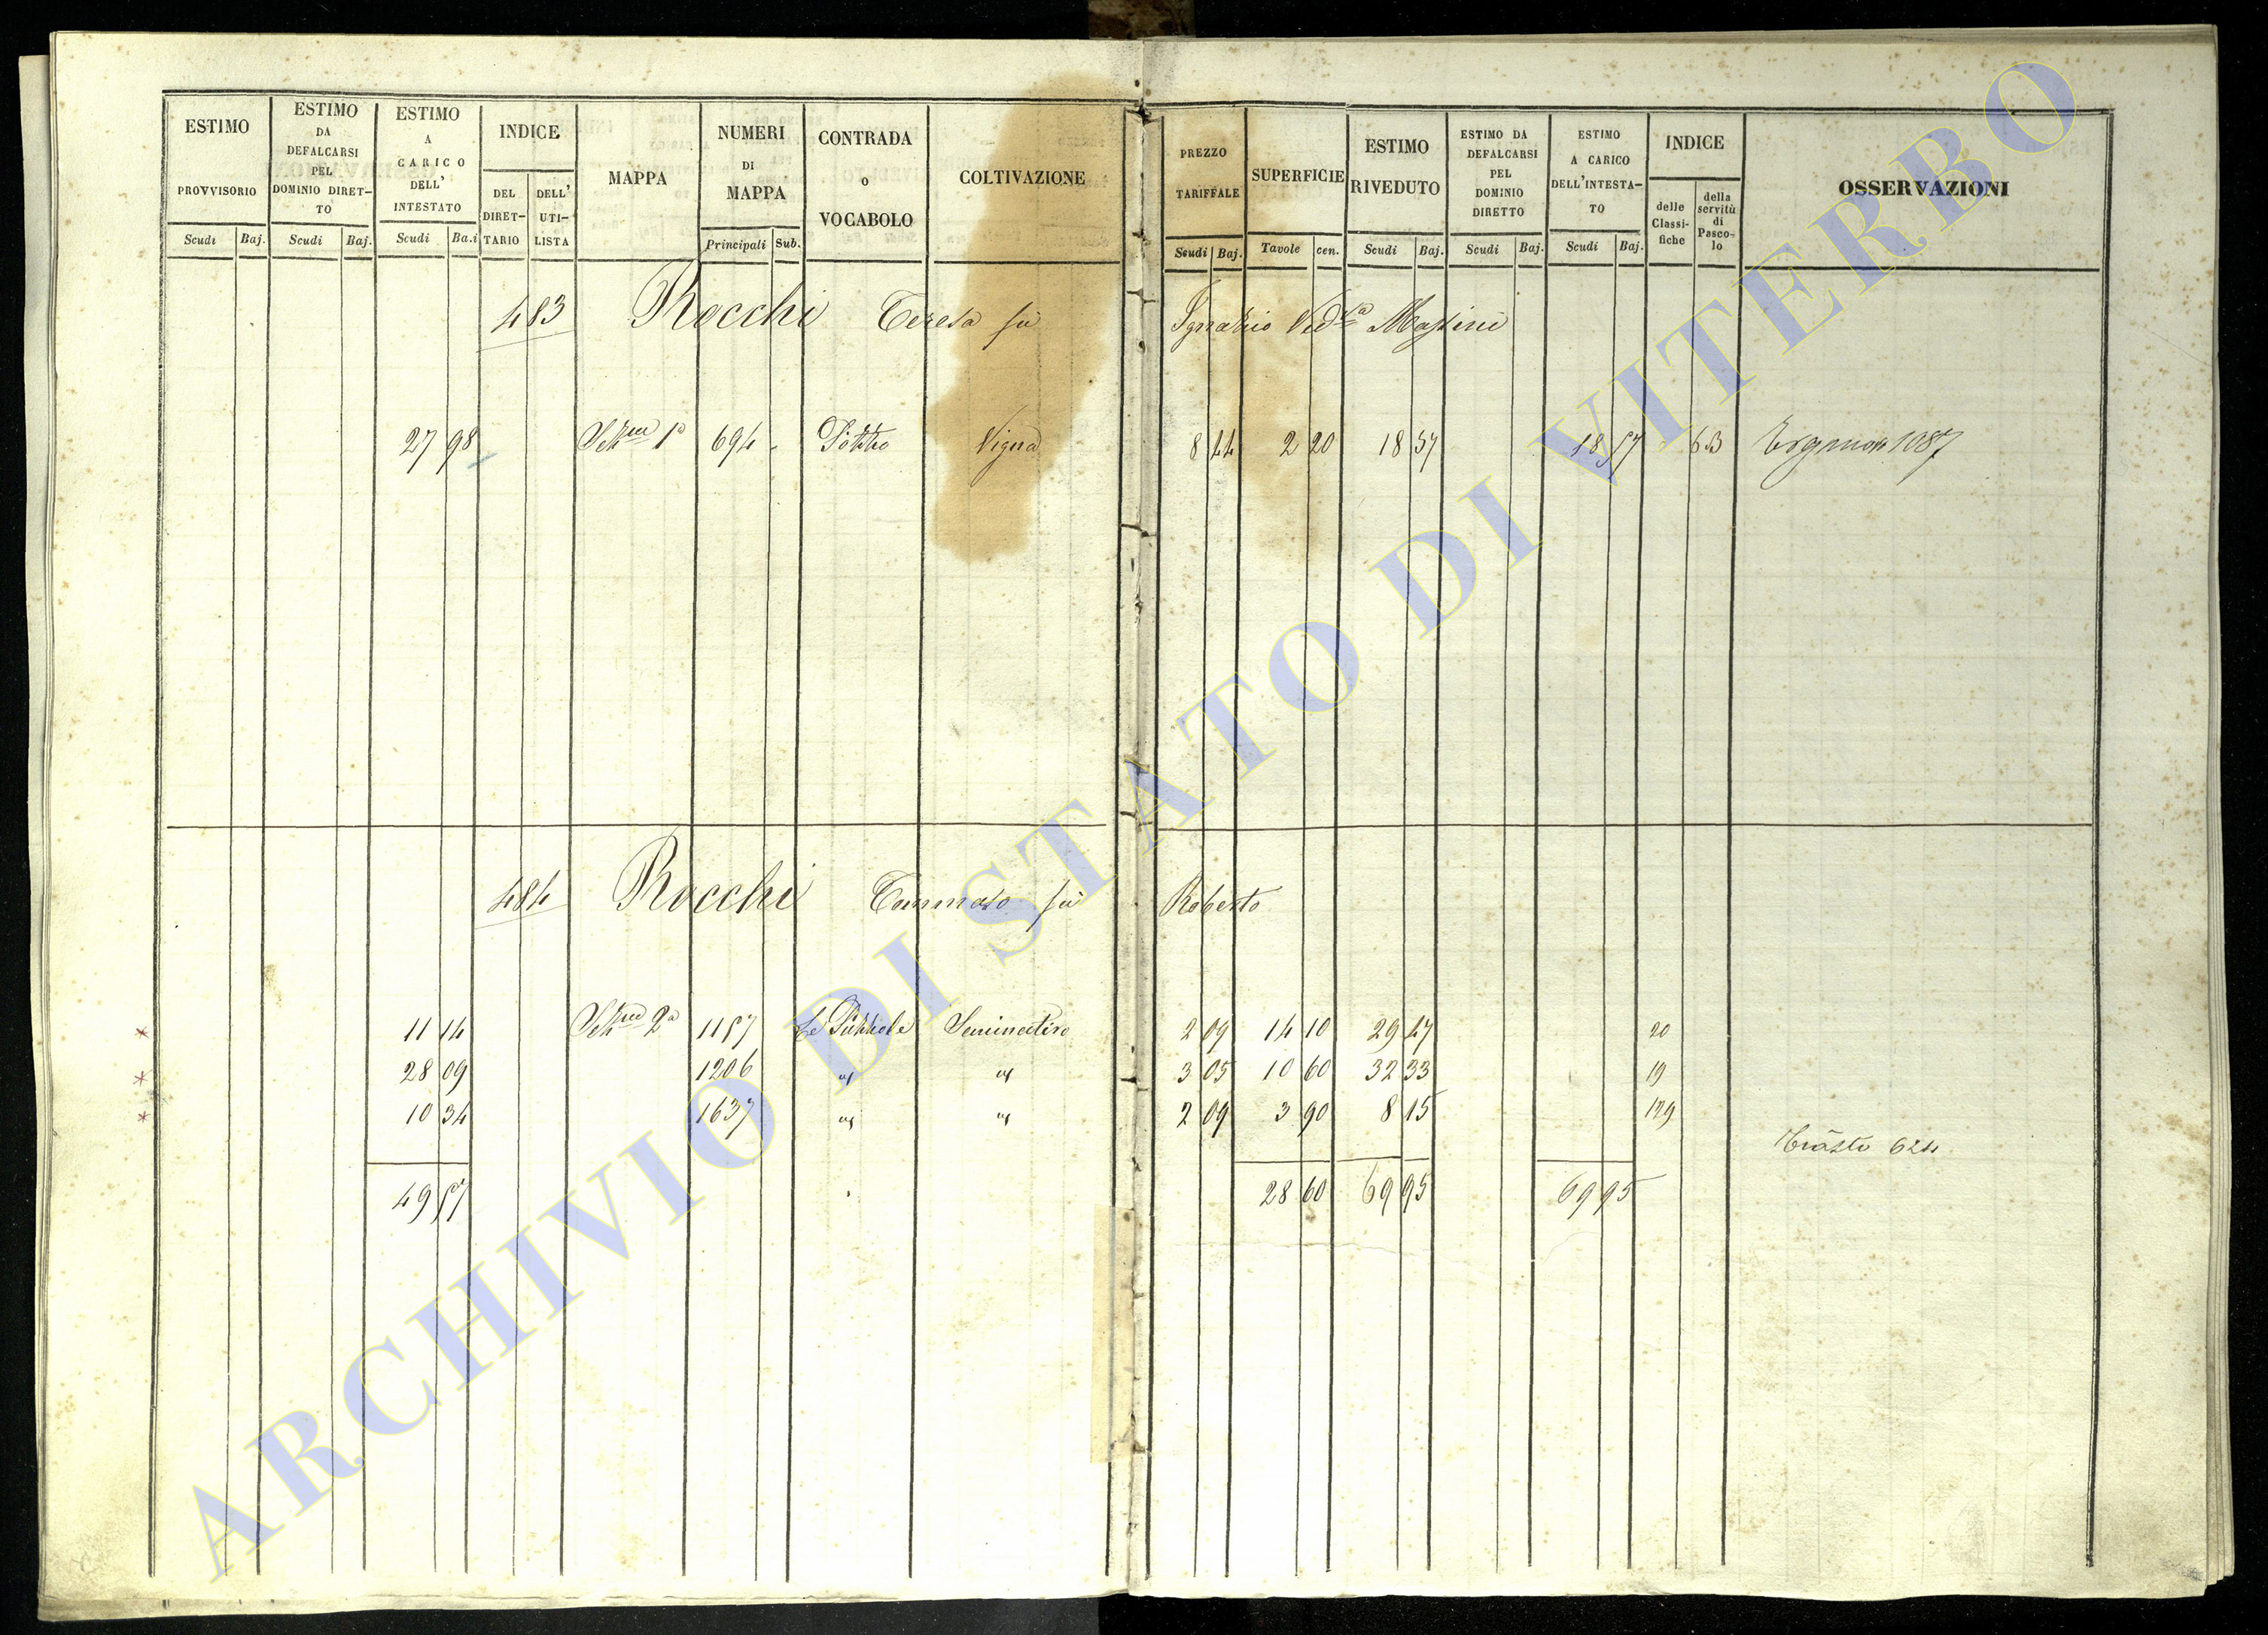 ESTIMO PROVVISORIO
ESTIMO DA DEFALCARSI PEL DOMINIO DIRETTO
ESTIMO A CARICO DELL' INTESTATO
INDICE
DEL DIRETTARIO
DELL' UTILISTA
MAPPA
NUMERI DI MAPPA
CONTRADA o VOCABOLO
COLTIVAZIONE
PREZZO TARIFFALE
SUPERFICIE
ESTIMO RIVEDUTO
ESTIMO DA DEFALCARSI PEL DOMINIO DIRETTO
ESTIMO A CARICO DELL'INTESTATO
INDICE
delle Classifiche
della servitù di Pascolo
OSSERVAZIONI
Scudi Baj. Scudi Baj. Scudi Ba.i Principali Sub. Scudi Baj. Tavole cen. Scudi Baj. Scudi Baj. Scudi Baj.
483 Rocchi Teresa fu Ignazio Ved.va Massini
27 98 694 Vigna 8 44 2 20 18 57 18 57 63 1087
484 Rocchi Tommaso fu Roberto
11 14 2a 1157 Le Seminativo 2 09 14 10 29 47 20
28 09 1206 " " 3 05 10 60 32 33 19
10 34 1637 " " 2 09 3 90 8 15 179
624
49 57 28 60 69 95 69 95
ARCHIVIO DI STATO DI VITERBO